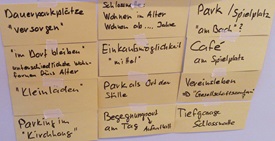 Dauerparkplätze
"versorgen"
"im Dorf bleiben"
unterschiedliche Wohn-
formen fürs Alter
"Kleinladen"
Parking im
"Kirchhang"
Wohnen im Alter
Wohnen ab ... Jahre
Einkaufsmöglichkeit
Park als Ort der
Stille
Begegnungsort
am Tag
Aufenthalt
Park / Spielplatz
"am Bach" ?
Café
am Spielplatz
Vereinsleben
Tiefgarage
Schlossmatte